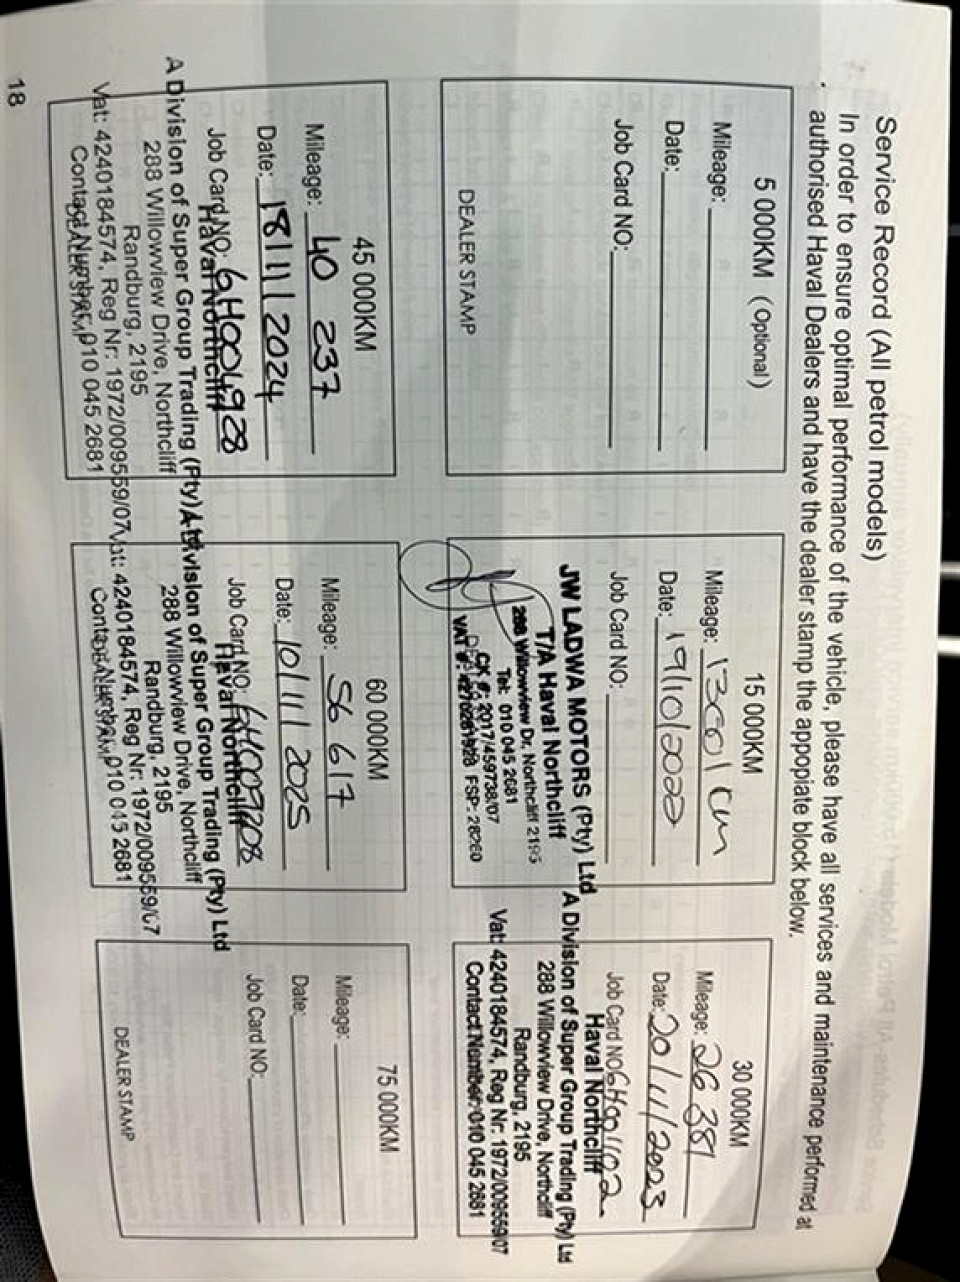 Service Record (All petrol models)
In order to ensure optimal performance of the vehicle, please have all services and maintenance performed at
authorised Haval Dealers and have the dealer stamp the appopiate block below.
5 000KM (Optional)
Mileage:
Date:
Job Card NO:
DEALER STAMP
15 000KM
Mileage: 13601 km
Date: 19/10/2022
Job Card NO:
JW LADWA MOTORS (Pty) Ltd
T/A Haval Northcliff
288 Willowview Dr, Northcliff 2195
Tel: 010 045 2681
CK #: 2017/459738/07
VAT #: FSP: 28260
30 000KM
Mileage: 26 381
Date: 20/11/2023
Job Card NO: 6H001102
Haval Northcliff
A Division of Super Group Trading (Pty) Ltd
288 Willowview Drive, Northcliff
Randburg, 2195
Vat: 4240184574, Reg Nr: 1972/009559/07
Contact Number: 010 045 2681
45 000KM
Mileage: 40 237
Date: 18/11/2024
Job Card NO: 6H004928
Haval Northcliff
A Division of Super Group Trading (Pty) Ltd
288 Willowview Drive, Northcliff
Randburg, 2195
Vat: 4240184574, Reg Nr: 1972/009559/07
Contact Number: 010 045 2681
DEALER STAMP
60 000KM
Mileage: 56 617
Date: 10/11/2025
Job Card NO:
Haval Northcliff
A Division of Super Group Trading (Pty) Ltd
288 Willowview Drive, Northcliff
Randburg, 2195
Vat: 4240184574, Reg Nr: 1972/009559/07
Contact Number: 010 045 2681
DEALER STAMP
75 000KM
Mileage:
Date:
Job Card NO:
DEALER STAMP
18